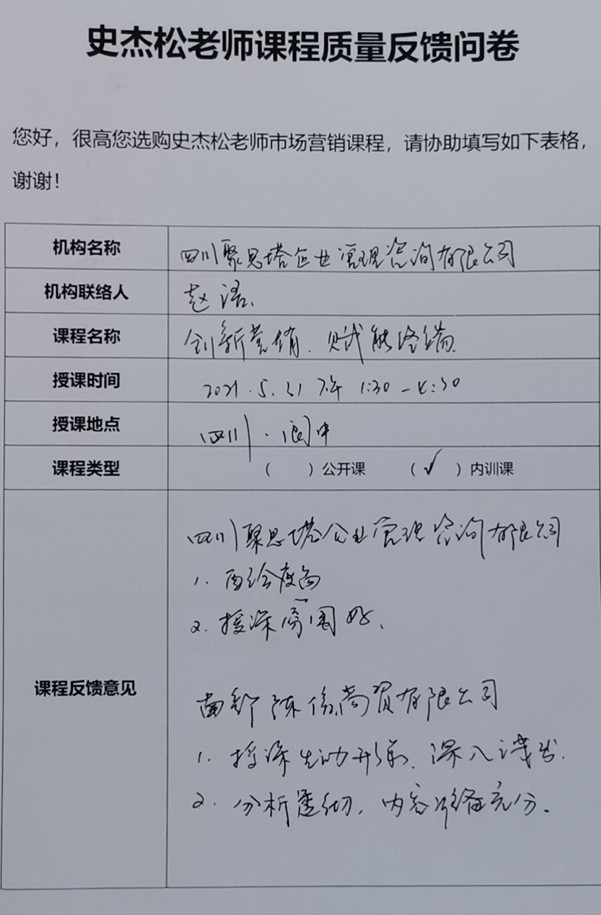 史杰松老师课程质量反馈问卷
您好，很高您选购史杰松老师市场营销课程，请协助填写如下表格，
谢谢！
机构名称 四川聚思塔企业管理咨询有限公司
机构联络人 赵
课程名称 创新营销、赋能终端
授课时间 2021.5.21 下午 1:30-4:30
授课地点 四川·阆中
课程类型 （ ）公开课 （✓）内训课
课程反馈意见
四川聚思塔企业管理咨询有限公司
1. 配合度高
2. 授课氛围好、
南部 商贸有限公司
1. 授课生动形象、深入浅出.
2. 分析透彻，内容准备充分.